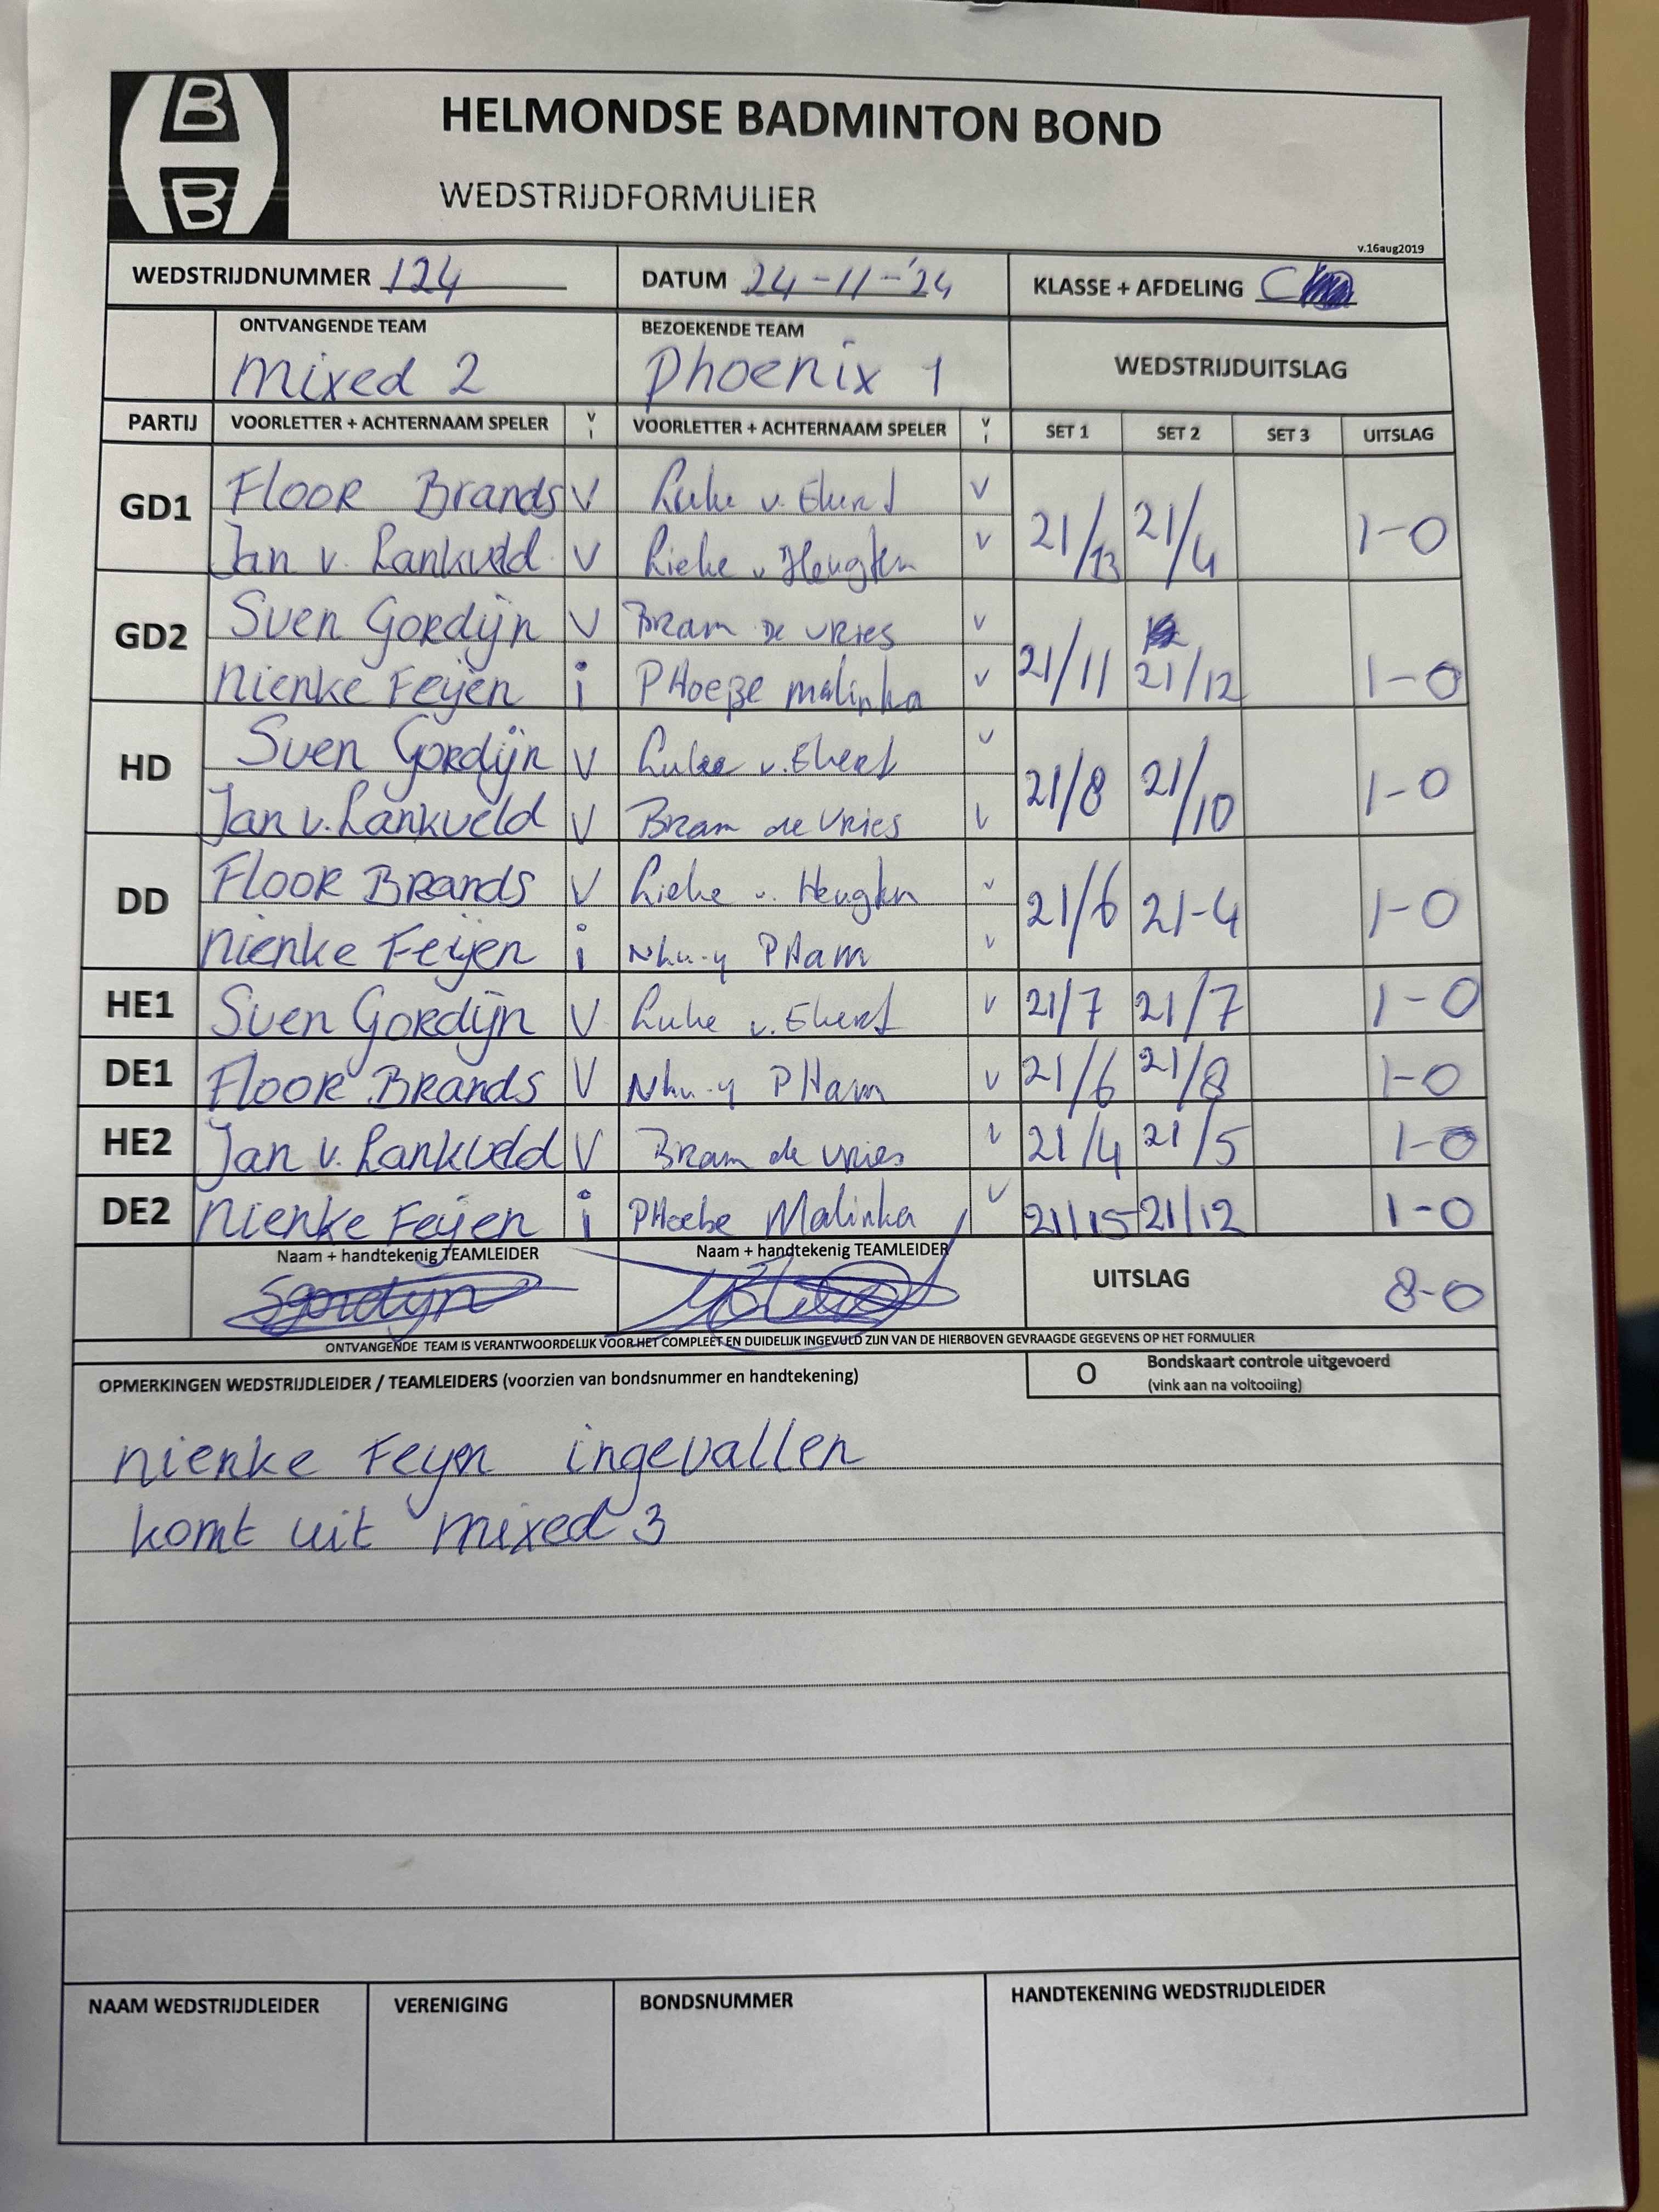 B
B
HELMONDSE BADMINTON BOND
WEDSTRIJDFORMULIER
v.16aug2019
WEDSTRIJDNUMMER 124 DATUM 24-11-'24 KLASSE + AFDELING C
ONTVANGENDE TEAM BEZOEKENDE TEAM WEDSTRIJDUITSLAG
mixed 2 Phoenix 1
PARTIJ VOORLETTER + ACHTERNAAM SPELER V i VOORLETTER + ACHTERNAAM SPELER V i SET 1 SET 2 SET 3 UITSLAG
GD1 Floor Brands V v. V 21/13 21/4 1-0
Jan v. Lankveld V Lieke v Heugten V
GD2 Sven Gordijn V Bram De Vries V 21/11 21/12 1-0
Nienke Feijen i PHoeBe Malinka V
HD Sven Gordijn V v. V 21/8 21/10 1-0
Jan v. Lankveld V Bram de Vries V
DD Floor Brands V Lieke v. Heugten V 21/6 21-4 1-0
Nienke Feijen i Nhu-y PHam V
HE1 Sven Gordijn V v. V 21/7 21/7 1-0
DE1 Floor Brands V Nhu-y PHam V 21/6 21/8 1-0
HE2 Jan v. Lankveld V Bram de Vries V 21/4 21/5 1-0
DE2 Nienke Feijen i PHoebe Malinka V 21/15 21/12 1-0
Naam + handtekenig TEAMLEIDER Naam + handtekenig TEAMLEIDER UITSLAG 8-0
Sgordijn
ONTVANGENDE TEAM IS VERANTWOORDELIJK VOOR HET COMPLEET EN DUIDELIJK INGEVULD ZIJN VAN DE HIERBOVEN GEVRAAGDE GEGEVENS OP HET FORMULIER
OPMERKINGEN WEDSTRIJDLEIDER / TEAMLEIDERS (voorzien van bondsnummer en handtekening) O Bondskaart controle uitgevoerd
(vink aan na voltooiing)
Nienke Feyen ingevallen
komt uit mixed 3
NAAM WEDSTRIJDLEIDER VERENIGING BONDSNUMMER HANDTEKENING WEDSTRIJDLEIDER